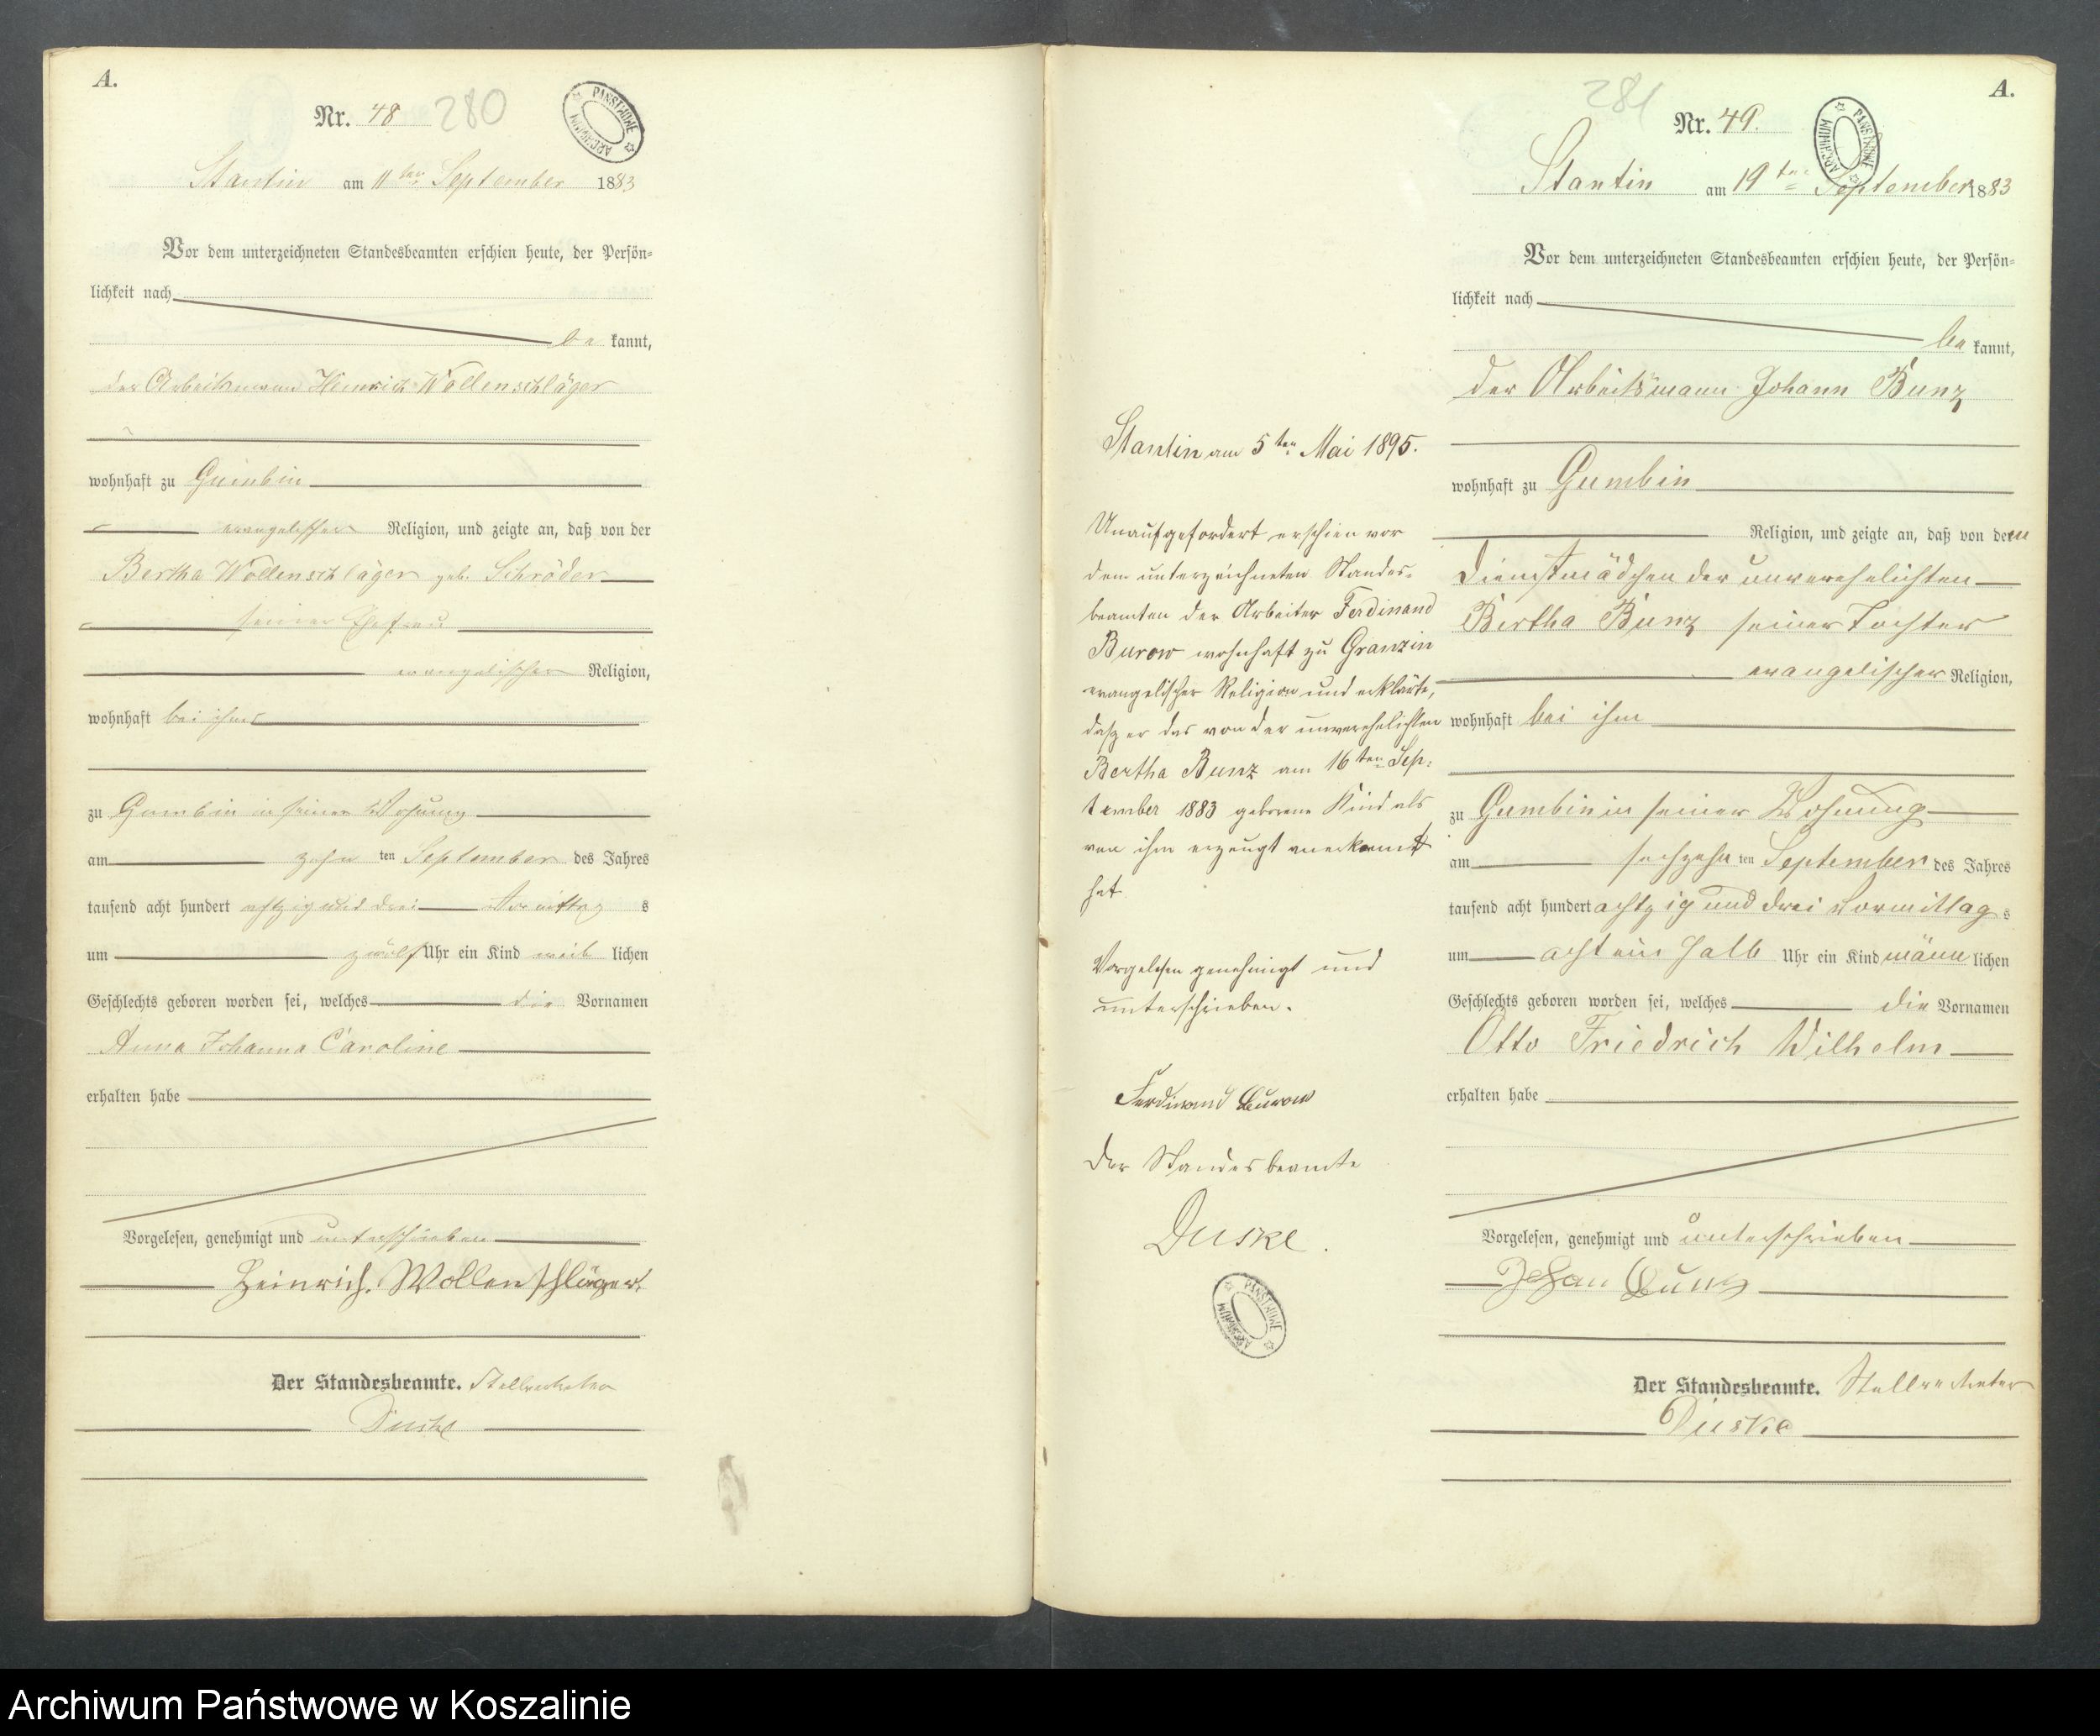 A.
Nr. 48 280
ARCHIWUM PAŃSTWOWE
Stantin am 11ten September 1883
Vor dem unterzeichneten Standesbeamten erschien heute, der Persön-
lichkeit nach
be kannt,
der Arbeitsmann Heinrich Wollenschläger
wohnhaft zu Gumbin
evangelischer Religion, und zeigte an, daß von der
Bertha Wollenschläger geb. Schröder
seiner Ehefrau
evangelischer Religion,
wohnhaft bei ihm
zu Gumbin in seiner Wohnung
am zehn ten September des Jahres
tausend acht hundert achtzig und drei Vormittag s
um zwölf Uhr ein Kind weib lichen
Geschlechts geboren worden sei, welches die Vornamen
Anna Johanna Caroline
erhalten habe
Vorgelesen, genehmigt und unterschrieben
Heinrich Wollenschläger
Der Standesbeamte. Stellvertreter
Duske
Stantin am 5ten Mai 1895.
Unaufgefordert erschien vor
dem unterzeichneten Standes-
beamten der Arbeiter Ferdinand
Burow wohnhaft zu Granzin
evangelischer Religion und erklärte,
daß er das von der unverehelichten
Bertha Bunz am 16ten Sep-
tember 1883 geborene Kind als
von ihm erzeugt anerkannt
hat.
Vorgelesen genehmigt und
unterschrieben.
Ferdinand Burow
Der Standesbeamte
Duske.
ARCHIWUM PAŃSTWOWE
A.
281
Nr. 49.
ARCHIWUM PAŃSTWOWE
Stantin am 19ten September 1883
Vor dem unterzeichneten Standesbeamten erschien heute, der Persön-
lichkeit nach
be kannt,
der Arbeitsmann Johann Bunz
wohnhaft zu Gumbin
Religion, und zeigte an, daß von dem
Dienstmädchen der unverehelichten
Bertha Bunz seiner Tochter
evangelischer Religion,
wohnhaft bei ihm
zu Gumbin in seiner Wohnung
am sechzehn ten September des Jahres
tausend acht hundert achtzig und drei Vormittag s
um acht ein halb Uhr ein Kind männ lichen
Geschlechts geboren worden sei, welches die Vornamen
Otto Friedrich Wilhelm
erhalten habe
Vorgelesen, genehmigt und unterschrieben
Johan Bunz
Der Standesbeamte. Stellvertreter
Duske
Archiwum Państwowe w Koszalinie